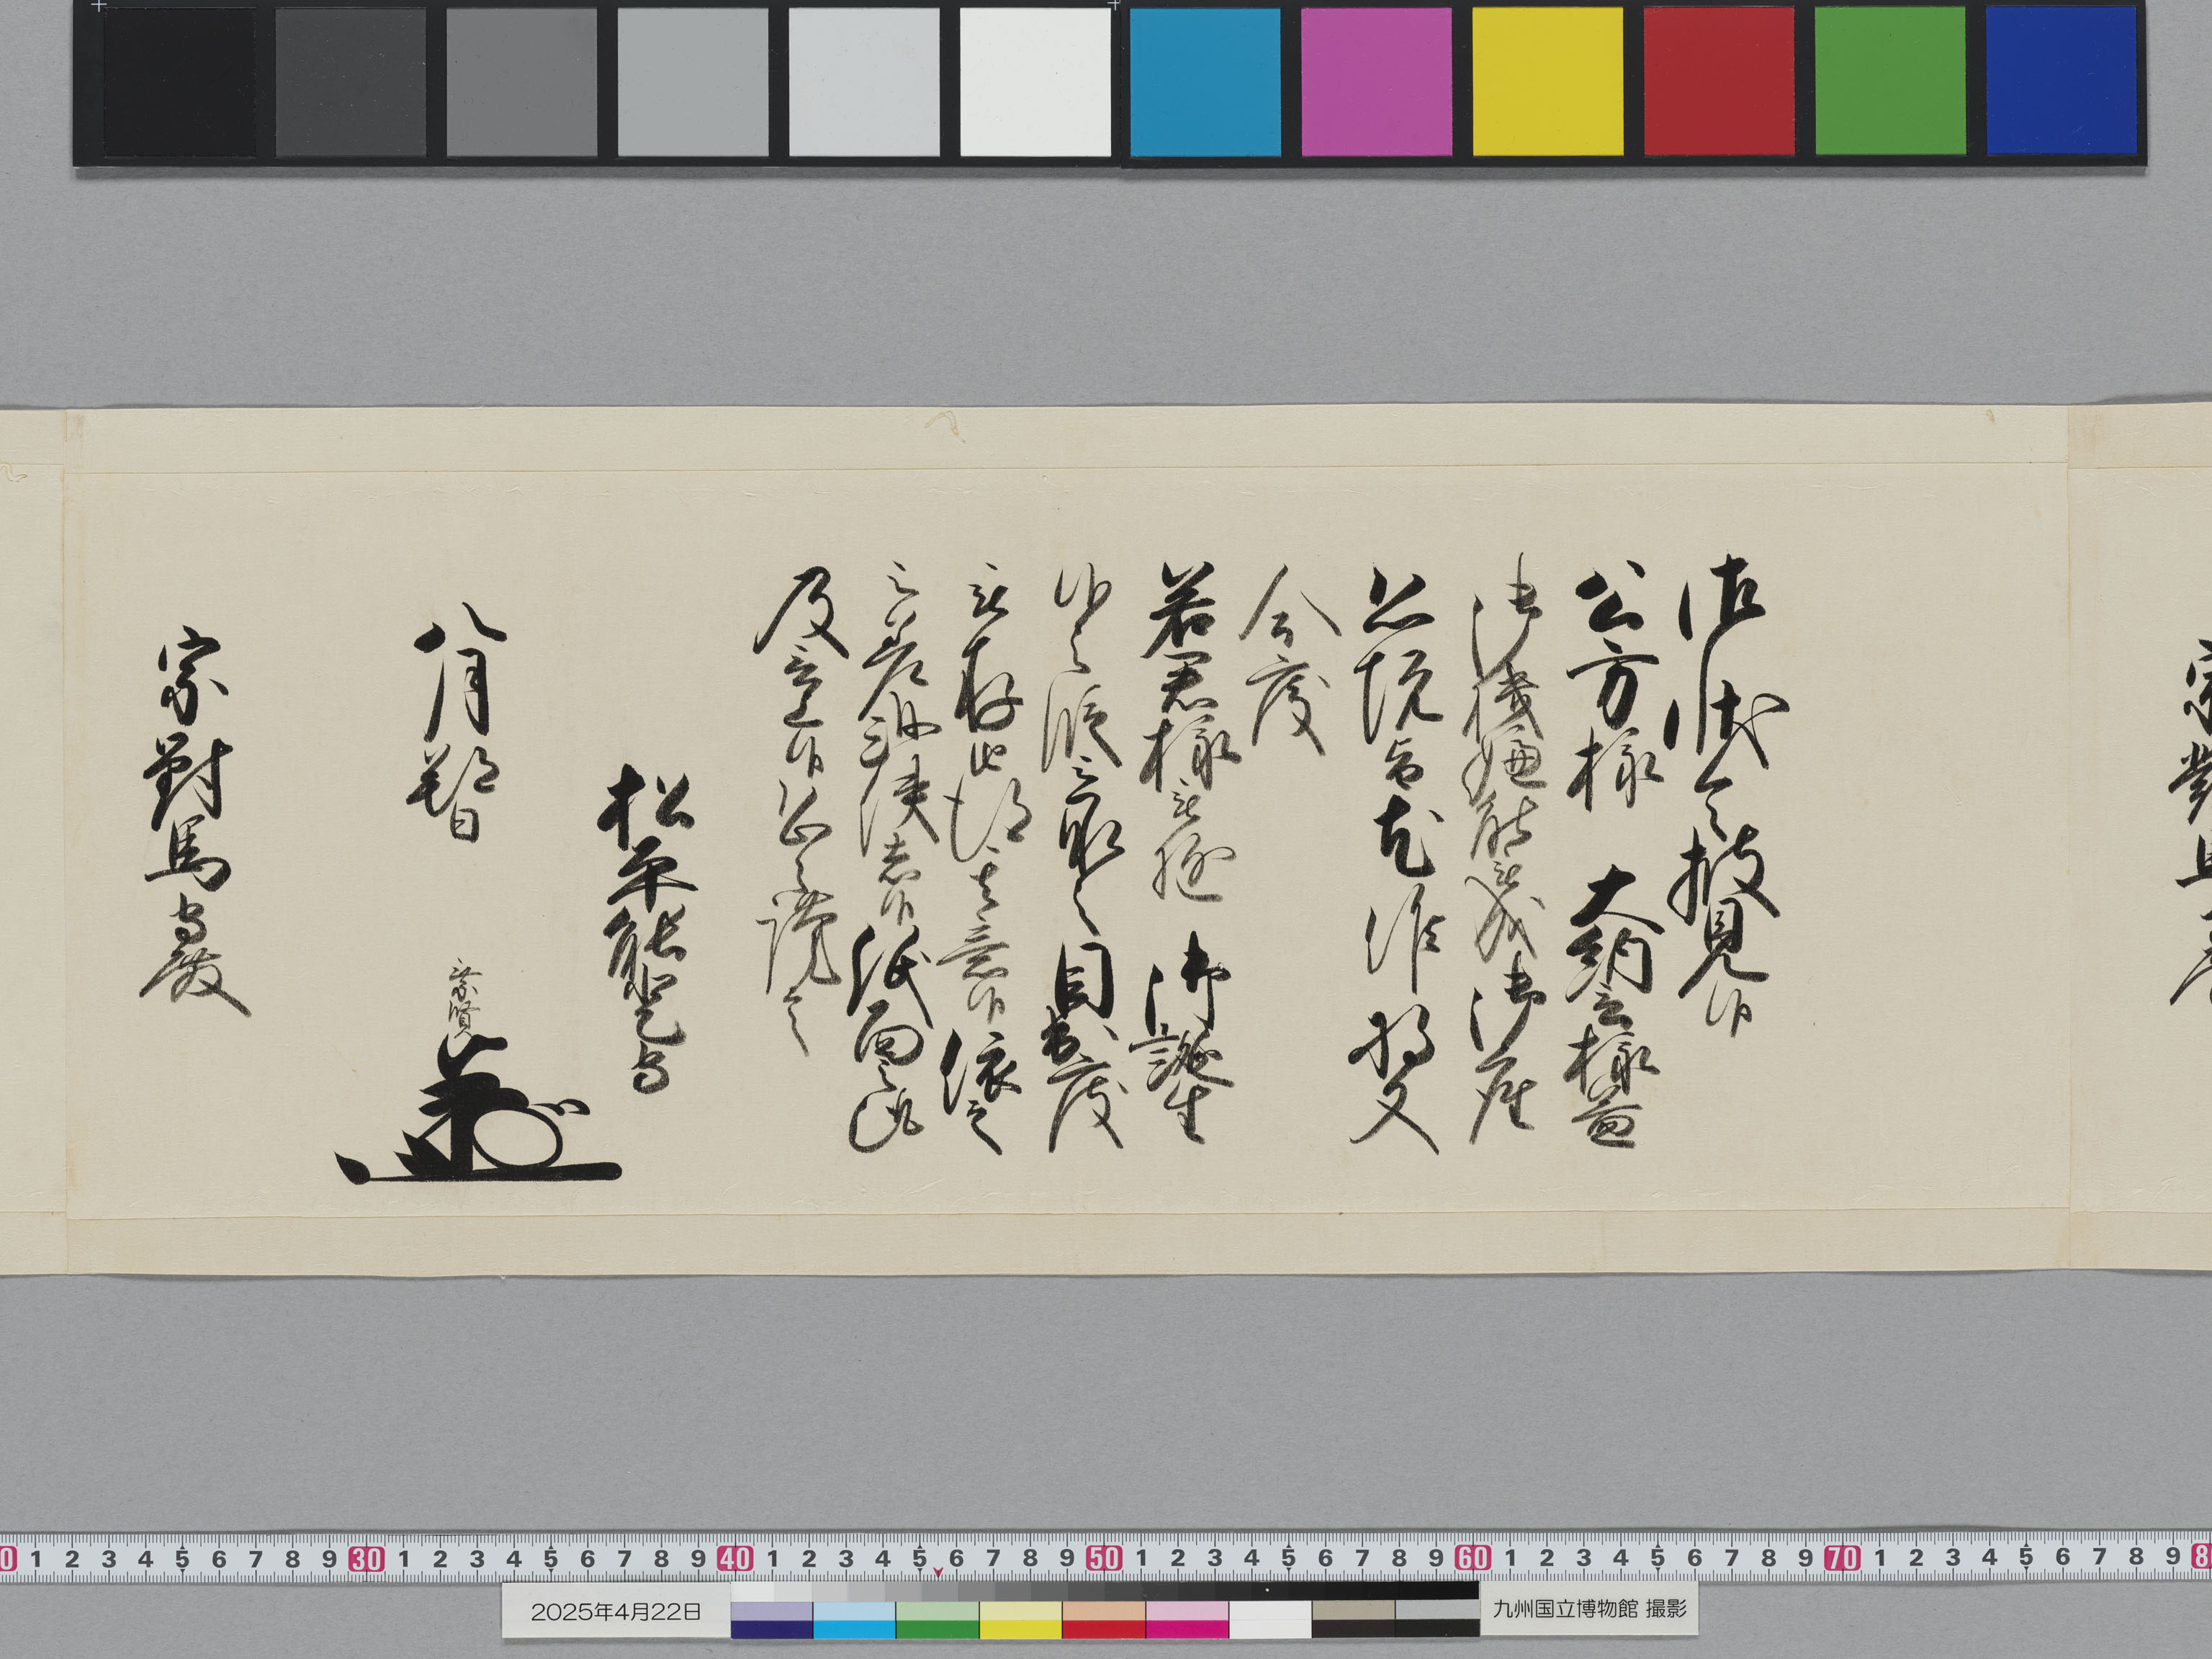 御状令披見候
公方様 大納言様益
御機嫌能被成御座
恐悦旨尤候将又
今度
若君様被遂 御誕生
候之段 目出度
被存 候依之
紙面之趣
及言上候恐々謹言
松平能登守
八月晦日
乗賢
宗對馬守殿
宗對馬守
0 1 2 3 4 5 6 7 8 9 30 1 2 3 4 5 6 7 8 9 40 1 2 3 4 5 6 7 8 9 50 1 2 3 4 5 6 7 8 9 60 1 2 3 4 5 6 7 8 9 70 1 2 3 4 5 6 7 8 9 8
2025年4月22日
九州国立博物館 撮影